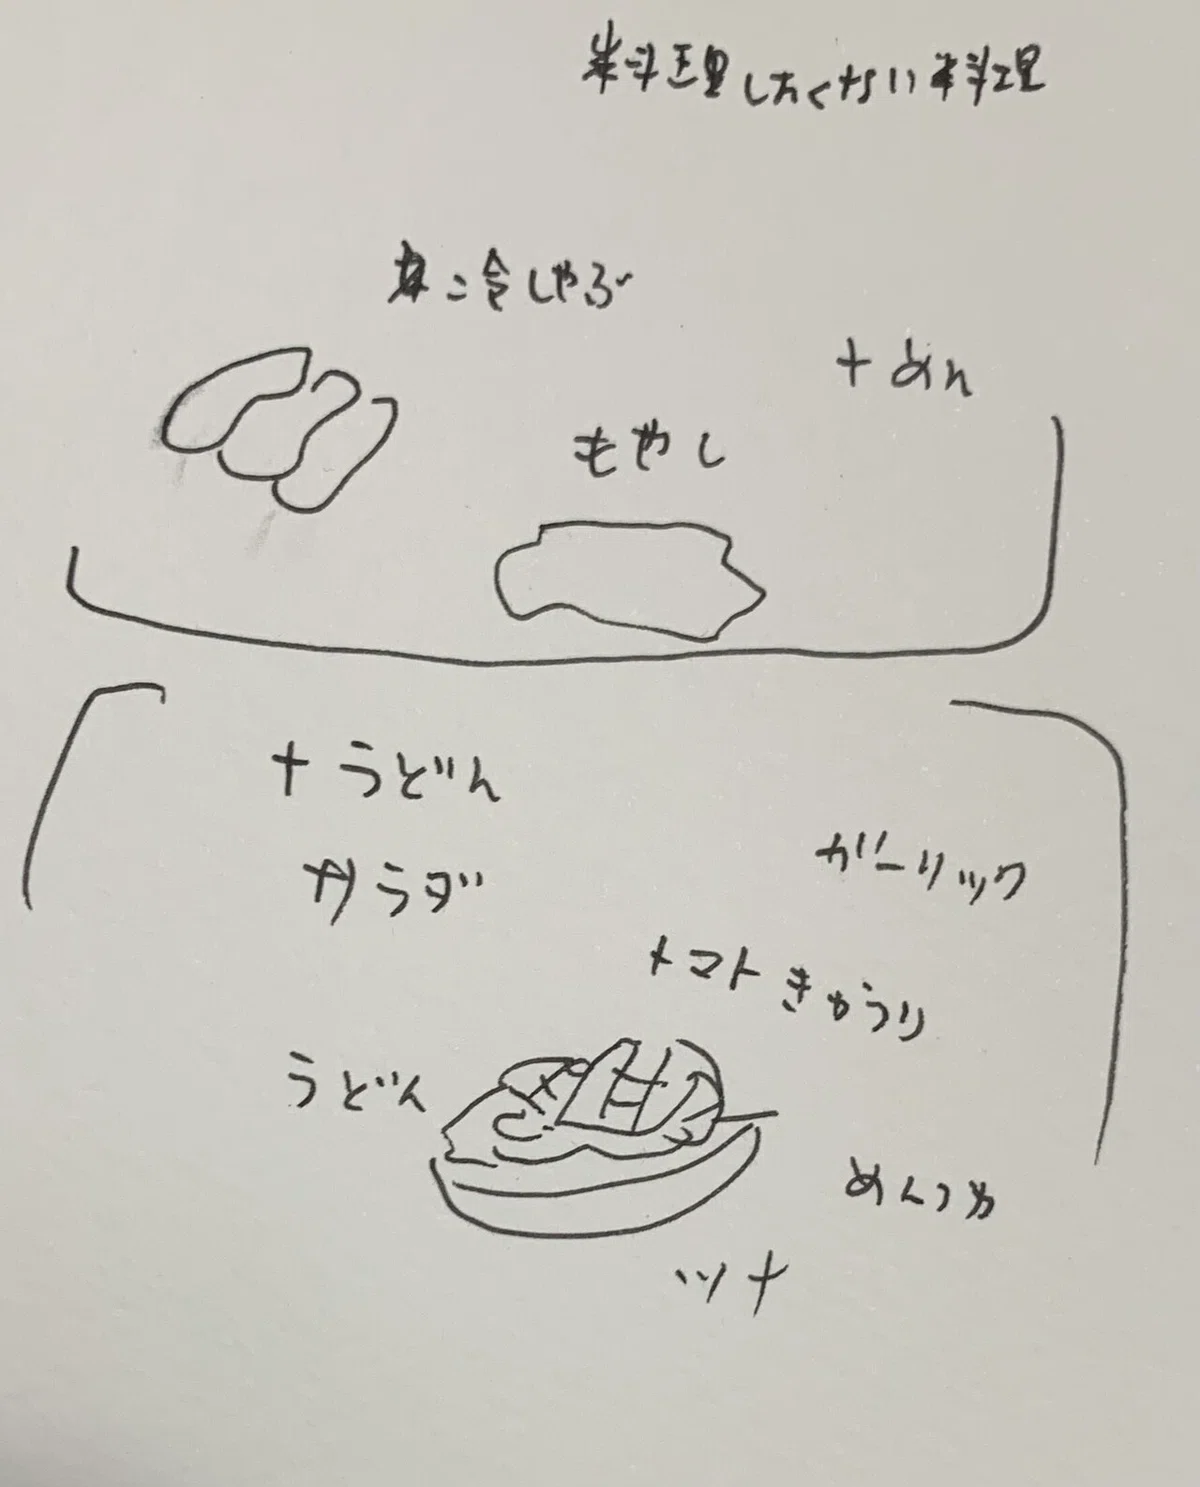 料理したくない料理
冷しゃぶ
+ めん
もやし
+ うどん
サラダ
ガーリック
トマト きゅうり
うどん
めんつゆ
ツナ